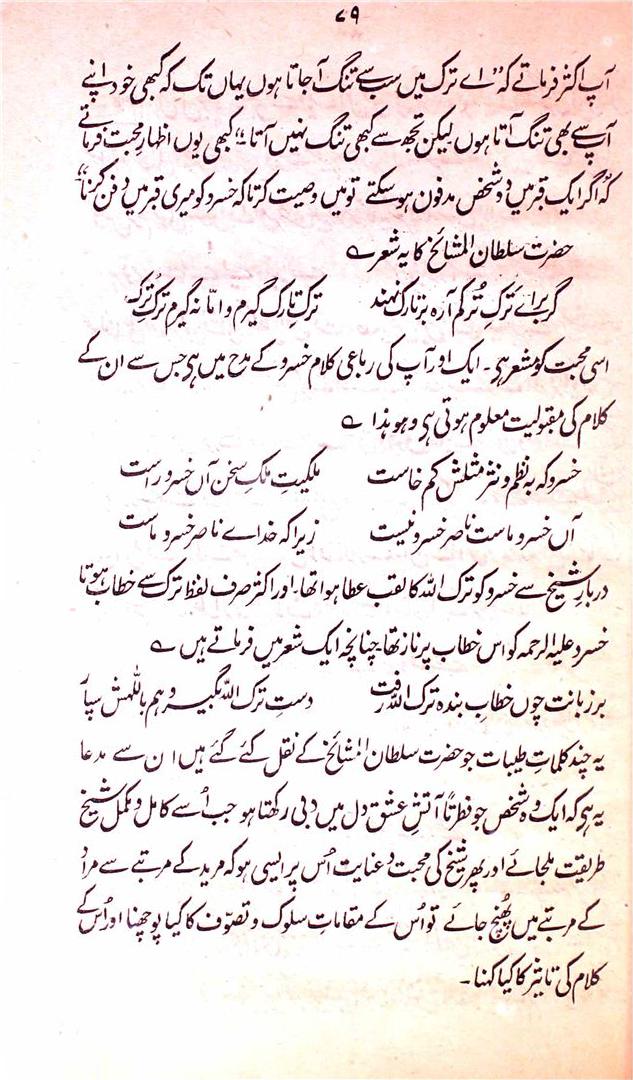 ۷۹
آپ اکثر فرماتے کہ "اے ترک میں سب سے تنگ آجاتا ہوں یہاں تک کہ کبھی خود اپنے
آپ سے بھی تنگ آتا ہوں لیکن تجھ سے کبھی تنگ نہیں آتا"؛ کبھی یوں اظہارِ محبت فرماتے
کہ "اگر ایک قبر میں دو شخص مدفون ہوسکتے تو میں وصیت کرتا کہ خسرو کو میری قبر میں دفن کرنا"
حضرت سلطان المشائخ کا یہ شعر ؎
گر برائے تَرکِ تُرکم آرہ بر تارک نہند ترکِ تارک گیرم و امّا نہ گیرم ترکِ تُرک
اسی محبت کو مشعر ہی۔ ایک اور آپ کی رباعی کلام خسرو کے مدح میں ہی جس سے ان کے
کلام کی مقبولیت معلوم ہوتی ہی وہو ہذا ؎
خسرو کہ بہ نظم و نثر مثلش کم خاست ملکیتِ ملکِ سخن آں خسرو راست
آں خسروِ ماست ناصر خسرو نیست زیرا کہ خداے ناصرِ خسروِ ماست
دربارِ شیخ سے خسرو کو ترک اللہ کا لقب عطا ہوا تھا۔ اور اکثر صرف لفظ ترک سے خطاب ہوتا
خسرو علیہ الرحمہ کو اس خطاب پر ناز تھا چنانچہ ایک شعر میں فرماتے ہیں ؎
بر زبانت چوں خطابِ بندہ ترک اللہ رفت دستِ ترک اللہ بگیر و ہم باللّٰہش سپار
یہ چند کلماتِ طیبات جو حضرت سلطان المشائخ کے نقل کئے گئے ہیں ان سے مدعا
یہ ہی کہ ایک وہ شخص جو فطرتاً آتشِ عشق دل میں دبی رکھتا ہو جب اُسے کامل و مکمل شیخ
طریقت ملجائے اور پھر شیخ کی محبت و عنایت اُس پر ایسی ہو کہ مرید کے مرتبے سے مراد
کے مرتبے میں پہُنچ جائے تو اُس کے مقاماتِ سلوک و تصوّف کا کیا پوچھنا اور اُس کے
کلام کی تاثیر کا کیا کہنا۔